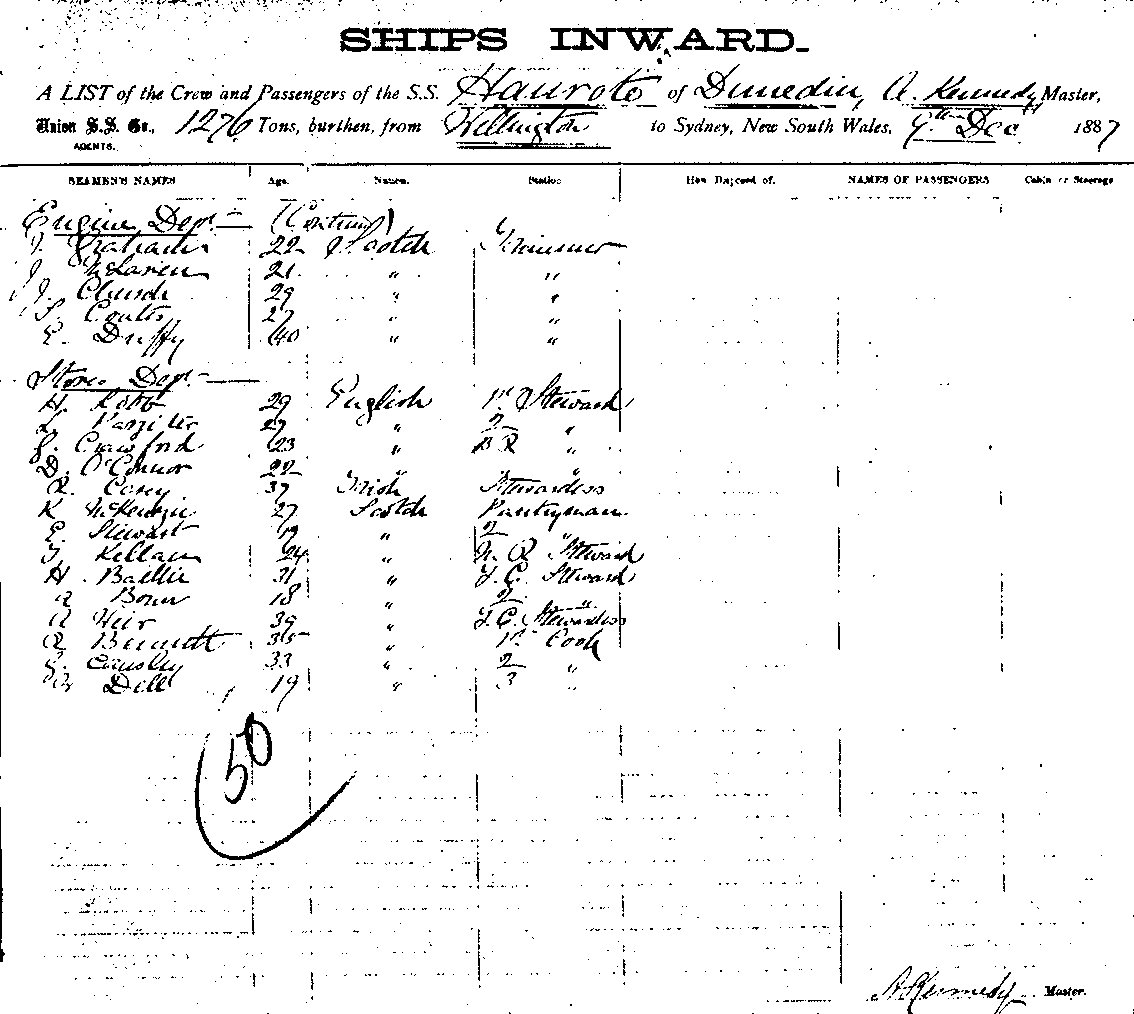 SHIPS INWARD.
A LIST of the Crew and Passengers of the S.S. Hauroto of Dunedin, A. Kennedy Master,
Union S.S. Co., 1276 Tons, burthen, from Wellington to Sydney, New South Wales, 9th Dec 1887
AGENTS.
SEAMEN'S NAMES Age. Nation. Station How Disposed of. NAMES OF PASSENGERS Cabin or Steerage
Engine Dept (Contind)
J. Graham 22 Scotch Trimmer
J. McLaren 21 " "
J. Church 29 " "
Coutts 27 " "
E. Duffy 40 " "
Stores Dept
H. Robb 29 English 1st Steward
L. Pargiter 27 " 2 "
Crawford 23 " B R "
D. O'Connor 22 " "
R. Casey 37 Irish Stewardess
K McKenzie 27 Scotch Pantryman
E. Stewart 19 " 2 "
Kellam 24 " Steward
H. Baillie 31 " F.C. Steward
A 18 " 2 "
A Weir 39 " F.C. Stewardess
R Bennett 35 " 1st Cook
G. Causley 33 " 2 "
Dell 19 " 3 "
50
A Kennedy Master.